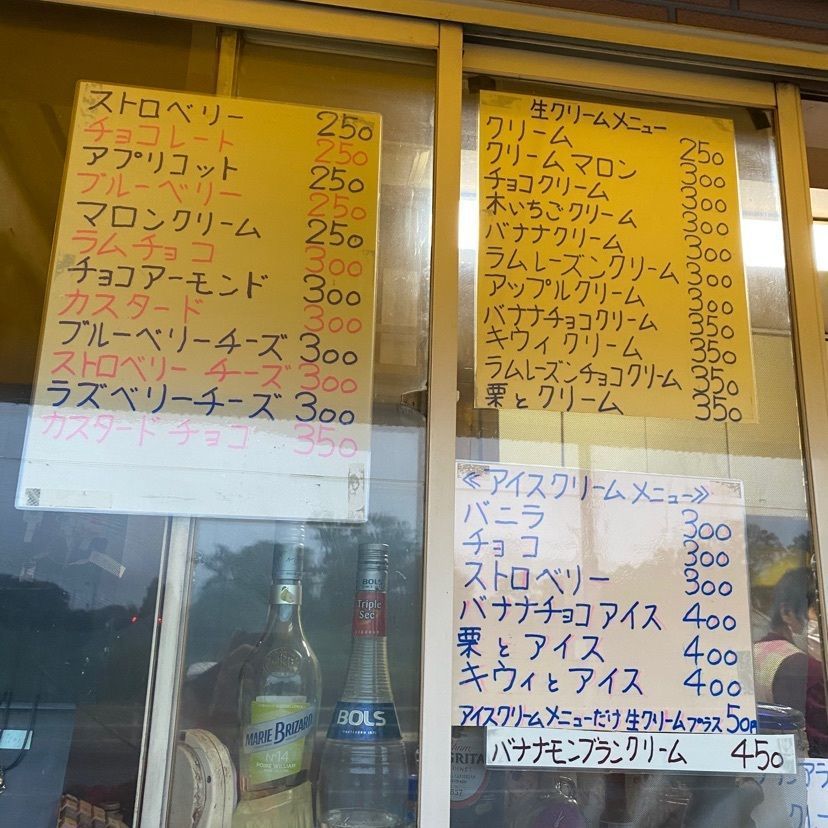 ストロベリー 250
チョコレート 250
アプリコット 250
ブルーベリー 250
マロンクリーム 250
ラムチョコ 300
チョコアーモンド 300
カスタード 300
ブルーベリーチーズ 300
ストロベリーチーズ 300
ラズベリーチーズ 300
カスタードチョコ 350
生クリームメニュー
クリーム 250
クリームマロン 300
チョコクリーム 300
木いちごクリーム 300
バナナクリーム 300
ラムレーズンクリーム 300
アップルクリーム 300
バナナチョコクリーム 350
キウィクリーム 350
ラムレーズンチョコクリーム 350
栗とクリーム 350
≪アイスクリームメニュー≫
バニラ 300
チョコ 300
ストロベリー 300
バナナチョコアイス 400
栗とアイス 400
キウィとアイス 400
アイスクリームメニューだけ生クリームプラス50円
バナナモンブランクリーム 450
MARIE BRIZARD
No14
POIRE WILLIAM
BOLS
Triple
Sec
BOLS